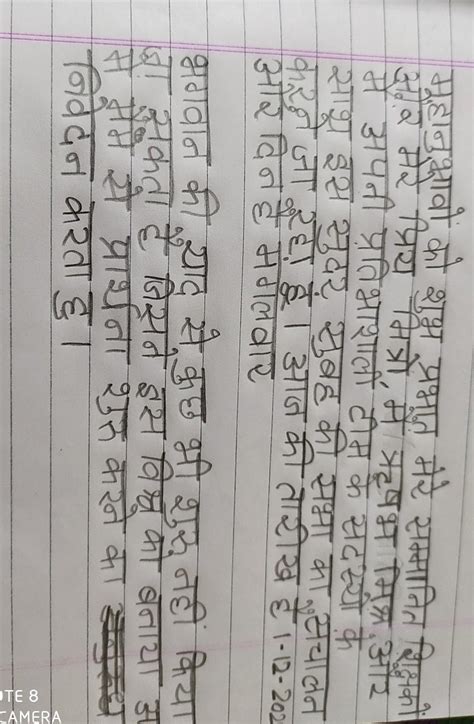 महानुभावों को शुभ प्रभात मेरे सम्मानित शिक्षकों
और मेरे प्रिय मित्रों मैं ऋषभ मिश्र और
मैं अपनी प्रतिभाशाली टीम के सदस्यों के
साथ इस सुंदर सुबह की सभा का संचालन
करने जा रहा हूं। आज की तारीख है 1-12-202
और दिन है मंगलवार
भगवान की याद से कुछ भी शुरू नहीं किया
जा सकता है जिसने इस विश्व को बनाया अ
मैं से प्रार्थना शुरू करने का
निवेदन करता हूं।
OTE 8
CAMERA